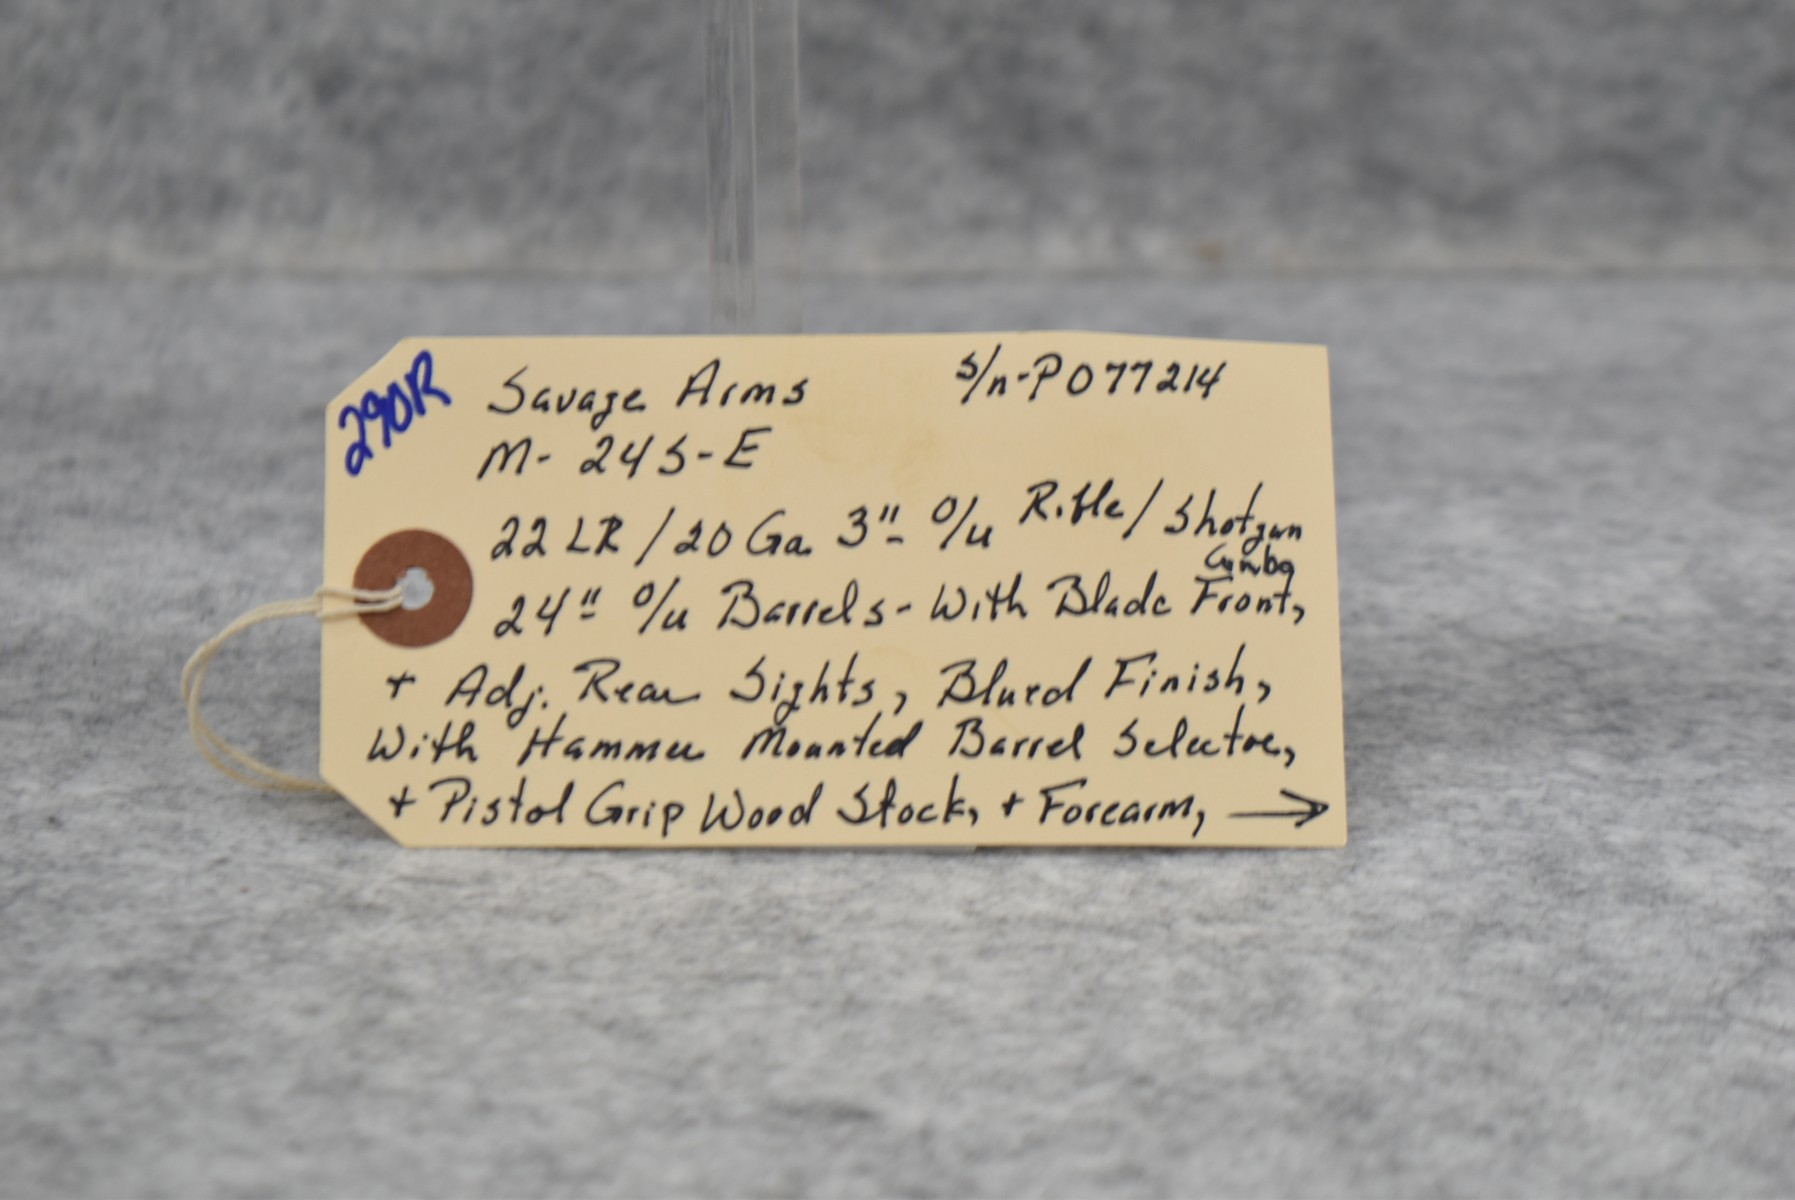 290R
Savage Arms s/n-P077214
M- 24S-E
22 LR / 20 Ga. 3"- O/u Rifle / Shotgun
Combo
24" O/u Barrels- With Blade Front,
+ Adj. Rear Sights, Blued Finish,
With Hammer Mounted Barrel Selector,
+ Pistol Grip Wood Stock, + Forearm, →